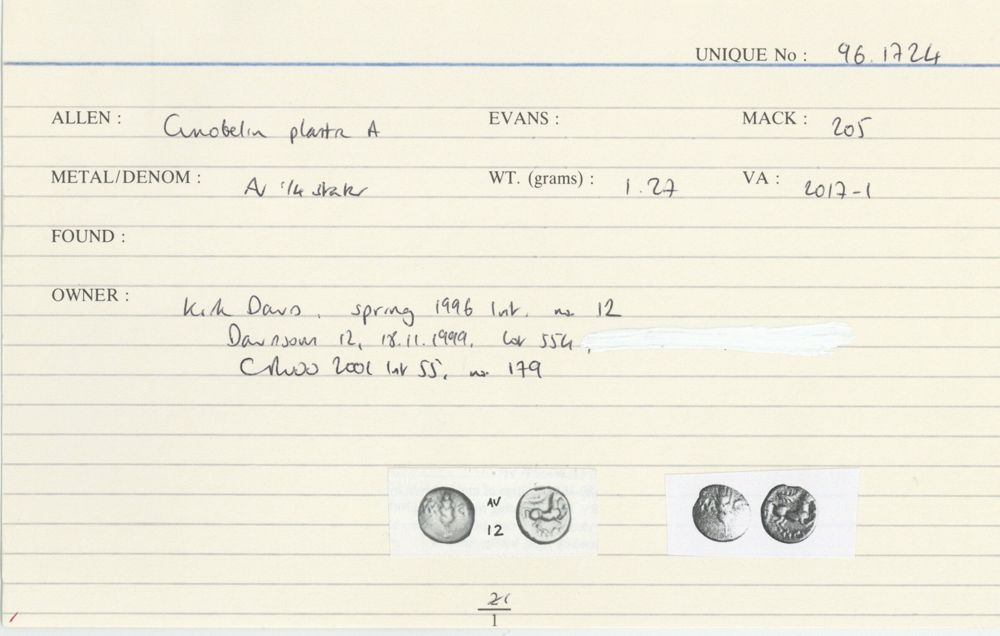 UNIQUE No : 96.1724
ALLEN : Cunobelin plastr A EVANS : MACK : 205
METAL/DENOM : AV 1/4 stater WT. (grams) : 1.27 VA : 2017-1
FOUND :
OWNER : Kirk Davis, spring 1996 list, no. 12
Davissons 12, 18.11.1999, lot 554,
CR 2001 list 55, no. 179
AV
12
21
1